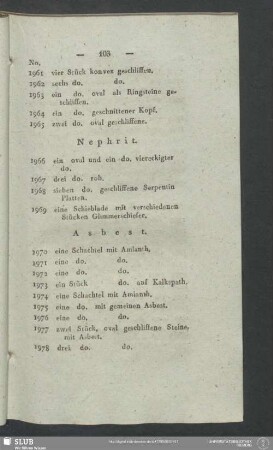 — 103 —
No.
1961 vier Stück konvex geschliffen,
1962 sechs do. do.
1963 ein do. oval als Ringsteine ge-
schliffen.
1964 ein do. geschnittener Kopf,
1965 zwei do. oval geschliffene.
Nephrit.
1966 ein oval und ein do. viereckigter
do.
1967 drei do. roh.
1968 sieben do. geschliffene Serpentin
Platten.
1969 eine Schieblade mit verschiedenen
Stücken Glimmerschiefer,
Asbest.
1970 eine Schachtel mit Amianth,
1971 eine do. do.
1972 eine do. do.
1973 ein Stück do. auf Kalkspath,
1974 eine Schachtel mit Amianth,
1975 eine do. mit gemeinen Asbest.
1976 eine do. do.
1977 zwei Stück, oval geschliffene Steine,
mit Asbest.
1978 drei do. do.
SLUB
Wir führen Wissen.